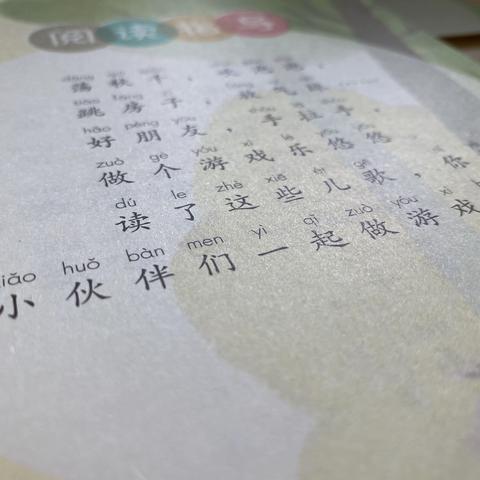 阅读指导
荡秋千，吹泡泡，
tiào fáng zi
跳房子，放气
hǎo péng yǒu shǒu lā shǒu
好朋友，手拉手，
zuò gè yóu xì lè yōu yōu
做个游戏乐悠悠
dú le zhè xiē ér gē
读了这些儿歌，你
xiǎo huǒ bàn men yì qǐ zuò yóu xì
小伙伴们一起做游戏